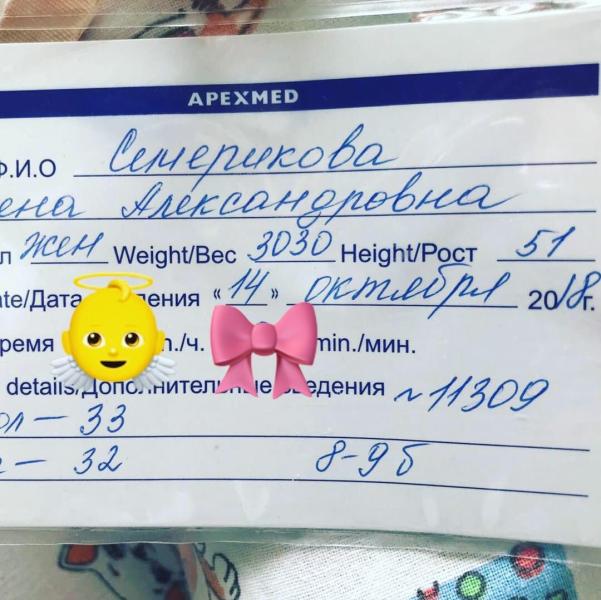 APEXMED
Ф.И.О Семерикова
ена Александровна
л жен Weight/Вес 3030 Height/Рост 51
ate/Дата ения «14» октября 2018г.
ремя n./ч. min./мин.
details/Дополнительные ведения ~11309
ол – 33
– 32 8-9б